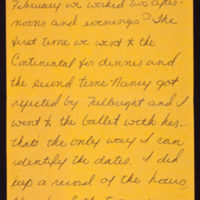 February we worked two after-
noons and evenings? The
first time we went to the
Continental for dinner and
the second time Nancy got
rejected by Fulbright and I
went to the ballet with her-
that's the only way I can
identify the dates. I did
keep a record of the hours,